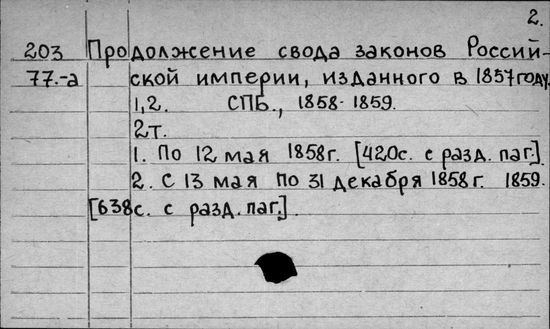 2.
203 Продолжение свода законов Россий-
77.-а ской империи, изданного в 1857 году.
1,2. СПБ., 1858-1859.
2т.
1. По 12 мая 1858г. [420с. с разд. паг.].
2. С 13 мая по 31 декабря 1858 г. 1859.
[638с. с разд. паг.].